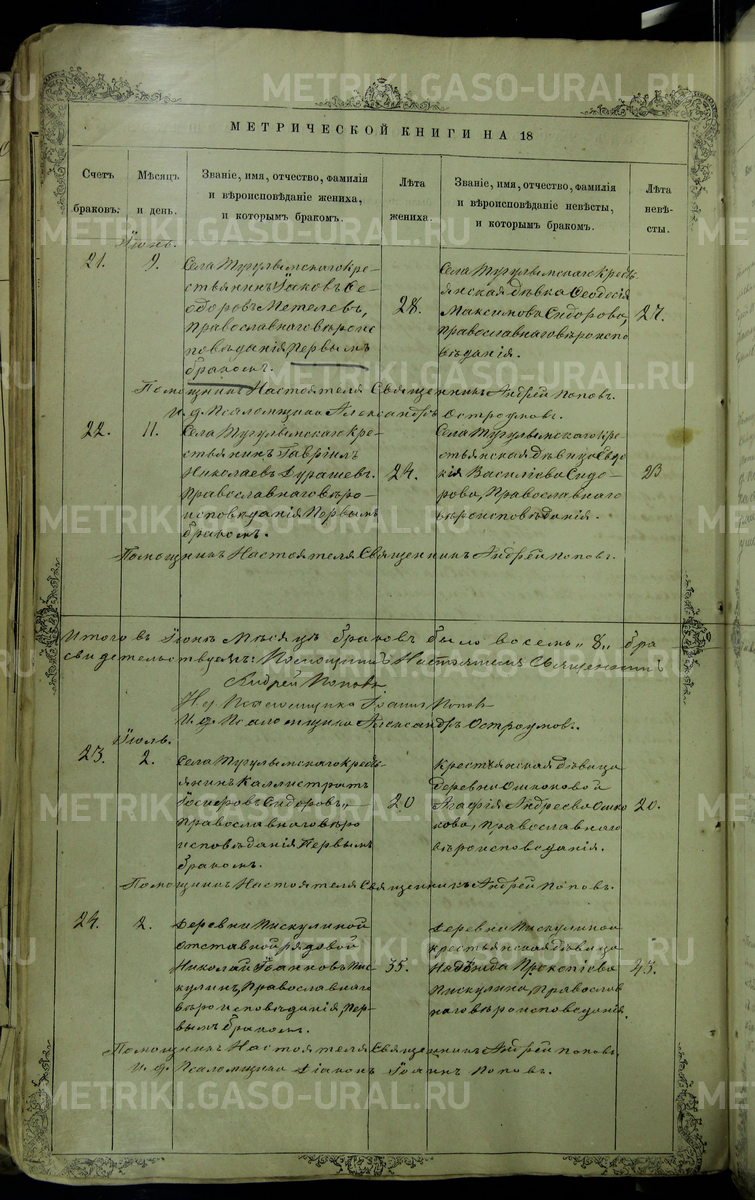 МЕТРИЧЕСКОЙ КНИГИ НА 18
Счетъ
браковъ.
Мѣсяцъ
и день.
Званіе, имя, отчество, фамилія
и вѣроисповѣданіе жениха,
и которымъ бракомъ.
Лѣта
жениха.
Званіе, имя, отчество, фамилія
и вѣроисповѣданіе невѣсты,
и которымъ бракомъ.
Лѣта
невѣ-
сты.
Іюнь.
21.
9.
Села Тугулымскаго кре-
стьянинъ Іаковъ Ѳе-
доровъ Метелевъ,
Православнаго вѣроис
повѣданія Первымъ
бракомъ.
28.
Села Тугулымскаго кресть-
янская дѣвка Ѳеодосія
Максимова Сидорова,
православнаго вѣроиспо
вѣданія.
27.
Помощникъ Настоятеля Священникъ Андрей Поповъ.
И. д. Псаломщика Александръ Остроумовъ.
22.
11.
Села Тугулымскаго кре-
стьянинъ Гавріилъ
Николаевъ Дурашевъ.
Православнаго вѣро-
исповѣданія Первымъ
бракомъ.
24.
Села Тугулымскаго кре-
стьянская дѣвица Евдо
кія Василіева Сидо-
рова, Православнаго
вѣроисповѣданія.
23
Помощникъ Настоятеля Священникъ Андрей Поповъ.
Итого въ Іюнѣ мѣсяцѣ браковъ было восемь „8„ бра
свидетельствуемъ: Помощникъ Настоятеля Священникъ
Андрей Поповъ
Псаломщика Іоаннъ Поповъ
И. д. Псаломщика Александръ Остроумовъ.
Іюль.
23.
2.
Села Тугулымскаго кресть-
янинъ Каллистратъ
Сидоровъ,
Православнаго вѣро
исповѣданія Первымъ
бракомъ.
20
Крестьянская дѣвица
деревни
Агафія Андреева
православнаго
вѣроисповѣданія.
20.
Помощникъ Настоятеля Священникъ Андрей Поповъ.
24.
2.
Деревни Пискулиной
отставной рядовой
Николай Іоанновъ Пис-
кулинъ, Православнаго
вѣроисповѣданія Пер-
вымъ бракомъ.
35.
Деревни Пискулиной
крестьянская дѣвица
Надежда Прокопіева
Пискулина, Православ
наго вѣроисповѣданія.
43.
Помощникъ Настоятеля Священникъ Андрей Поповъ.
И. д. Псаломщика Діаконъ Іоаннъ Поповъ.
METRIKI.GASO-URAL.RU